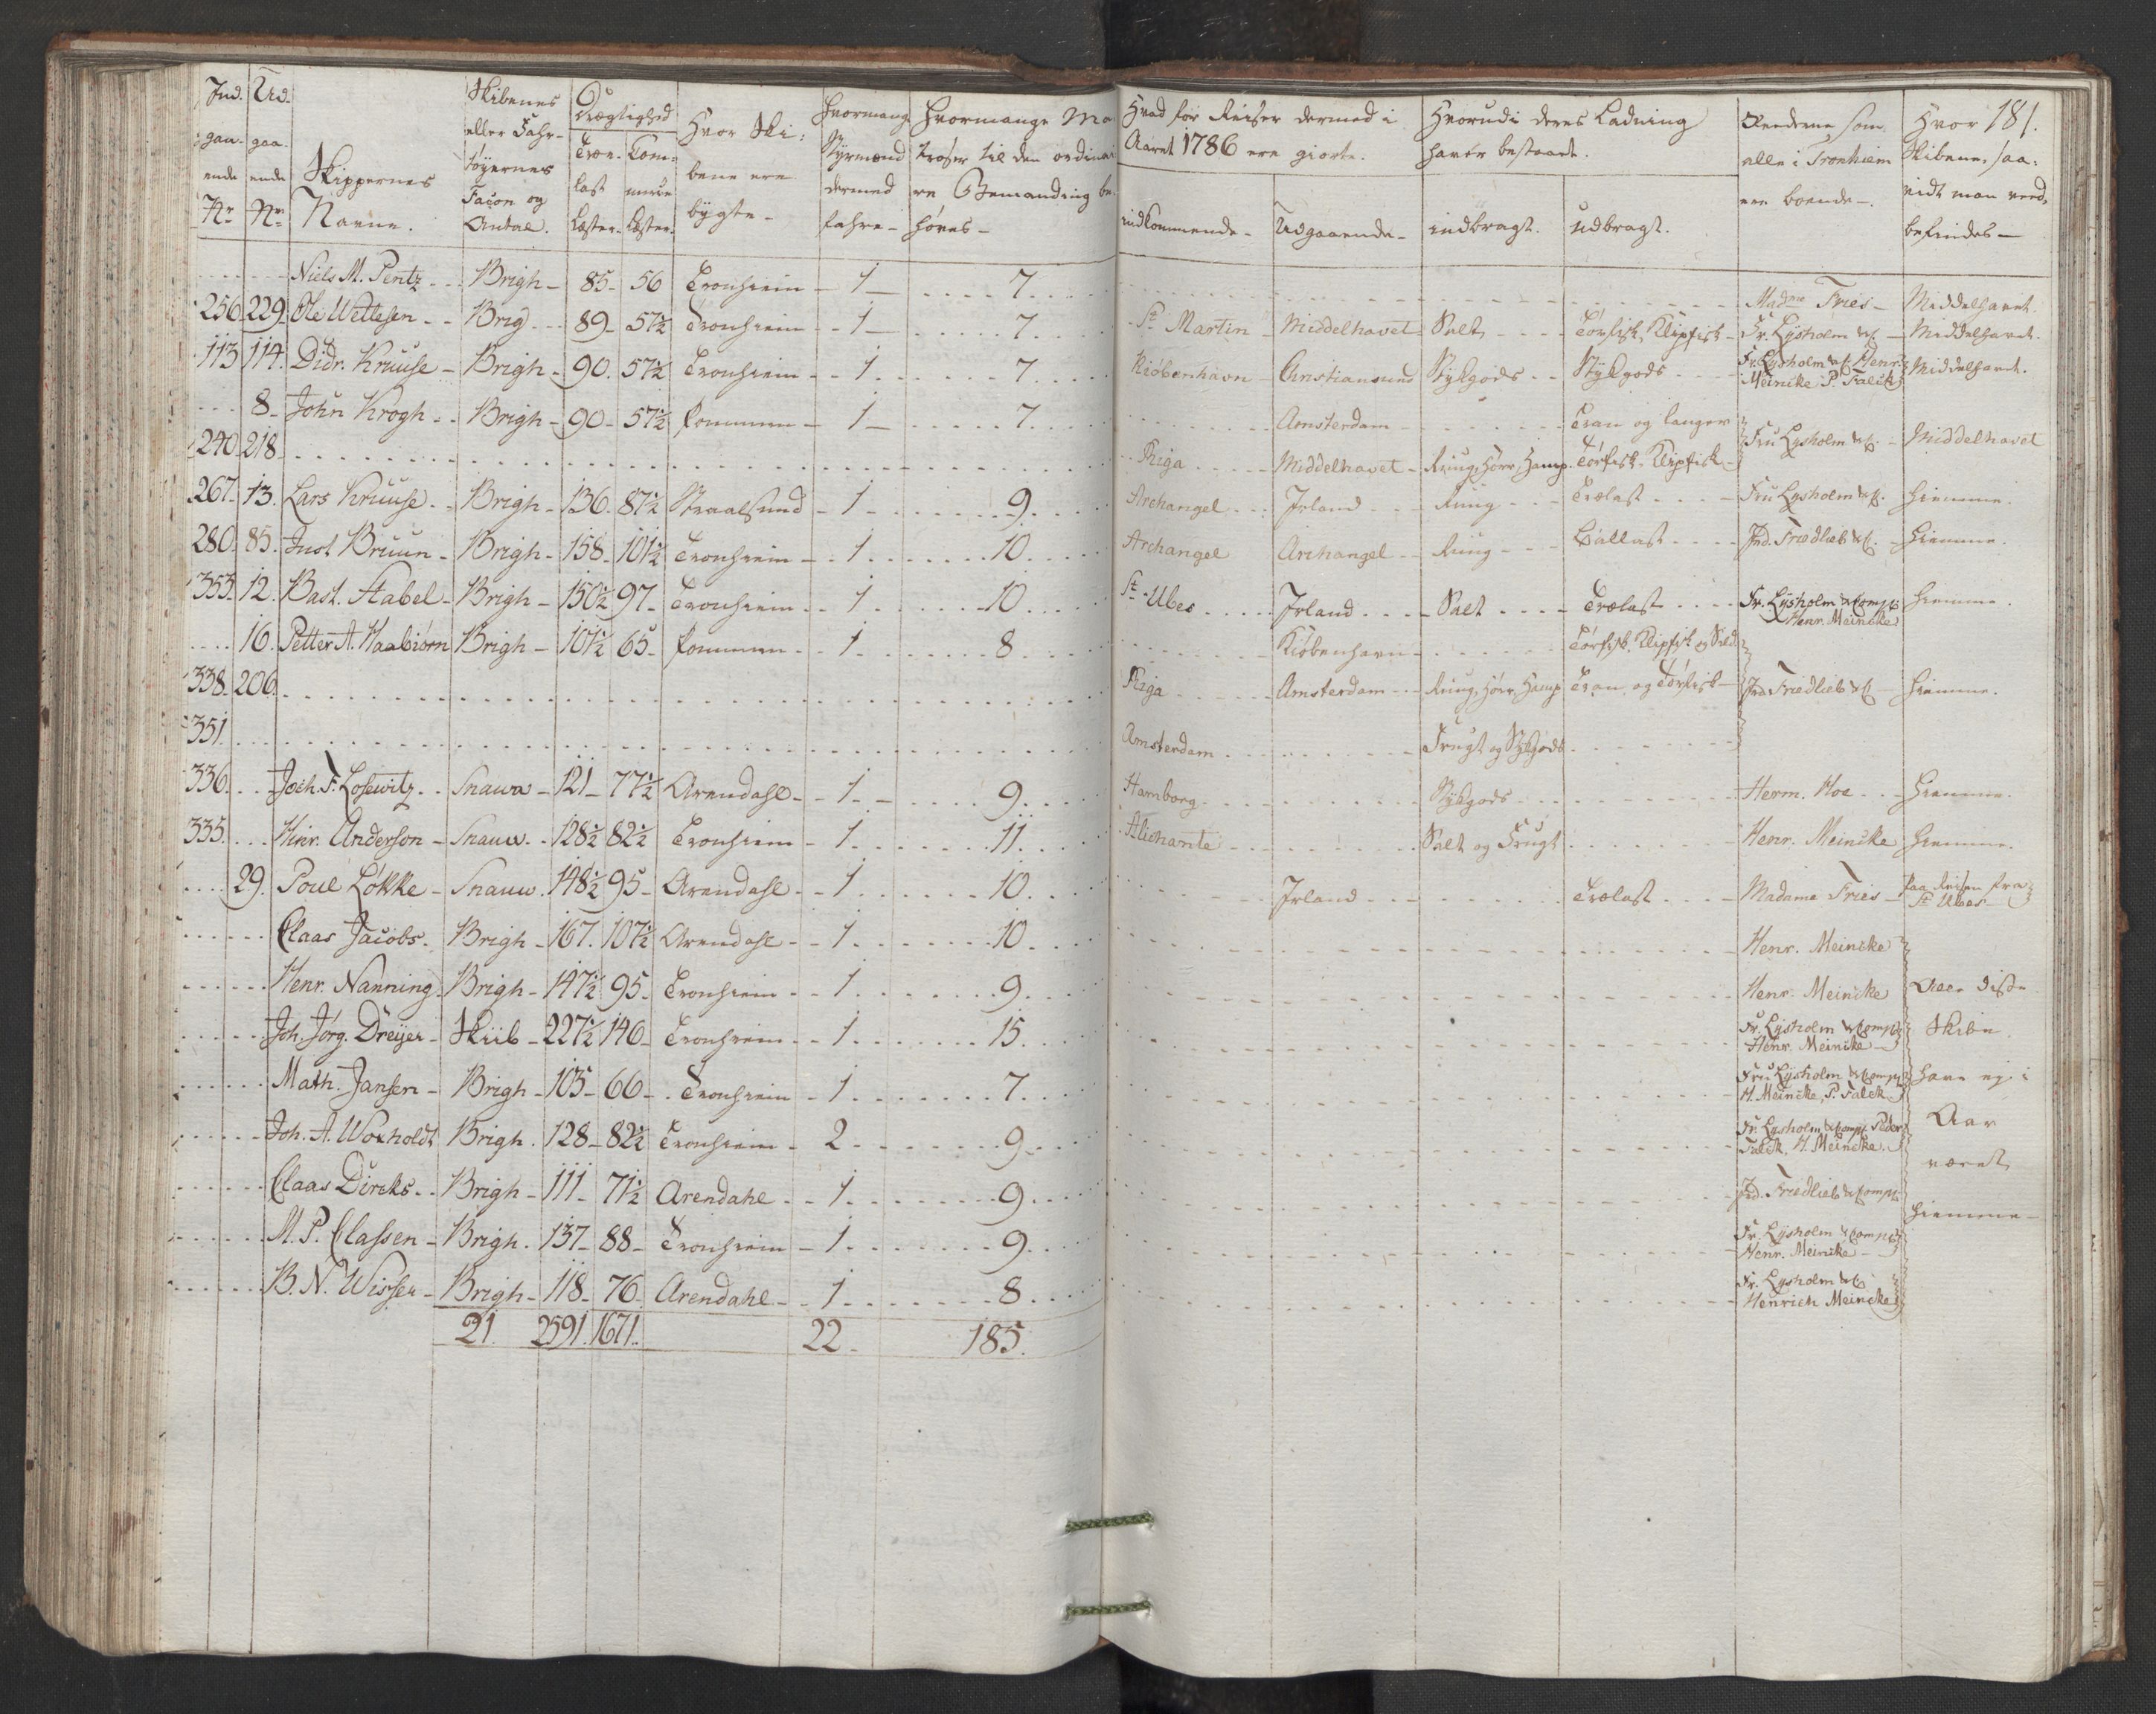 Ind- gaa- ende Nr. | Ud- gaa- ende Nr. | Skippernes Navne. | Skibenes eller Fahr- töyernes Facon og Antal. | Drægtighed Træe- last Læster. Com- merce Læster. | Hvor Ski- bene ere bygte - | Hvormange Styrmænd dermed fahre - | Hvormange Ma- troser til den ordinai- re Bemanding be- høves -
Niels M. Pentz - Brigh - 85 - 56 Tronhiem - 1 - 7
256 - 229 - Ole Wettesen - Brig - 89 - 57½ Tronhiem - 1 - 7
113 114. Didr. Kruuse - Brigh - 90. 57½ Tronhiem - 1 - 7
8 - John Krogh - Brigh - 90 - 57½ Pommern - 1 - 7
240 218
267 - 13. Lars Kruuse - Brigh - 136. 87½ Straalsund - 1 - 9
280. 85. Just Bruun - Brigh - 158 - 101½ Tronhiem - 1 - 10
353. 12. Bast. Stabel - Brigh - 150½ 97 - Tronhiem - 1 - 10
16. Petter A. Haabiörn Brigh - 101½ 65 - Pommern - 1 - 8
338. 206.
351.
336. Joch. F. Losewitz - Snauw - 121 - 77½ Arendahl - 1 - 9
335. Hinr. Anderson - Snauw - 128½ 82½ Tronhiem - 1 - 11
29. Poul Lökke - Snauw. 148½ 95 - Arendahl - 1 - 10
Claas Jacobs. Brigh - 167. 107½ Arendahl - 1 - 10
Henr. Nanning. Brigh - 147½ 95 - Tronhiem - 1 - 9
Joh. Jörg. Dreyer - Skiib - 227½ 146 - Tronhiem - 1 - 15
Math. Jansen - Brigh - 103 - 66 - Tronhiem - 1 - 7
Joh. A. Woxholdt Brigh. 128 - 82½ Tronhiem - 2 - 9
Claas Dircks - Brigh - 111 - 71½ Arendahl - 1 - 9
M. P. Classen - Brigh. 137 - 88 - Tronhiem - 1 - 9
B. N. Wisser - Brigh - 118 - 76 - Arendahl - 1 - 8
21. 2591. 1671. 22. 185.
Hvad for Reiser dermed i Aaret 1786 ere giorte. indkommende - Udgaaende - | Hvorudi deres Ladning haver bestaaet. indbragt. udbragt. | Reederne, som alle i Tronhiem ere boende - | Hvor Skibene, saa- vidt man veed, befindes -
181.
Madme Fries - Middelhavet.
St Martin Middelhavet Salt - Törfisk, Klipfisk - Fr. Lysholm & C. - Middelhavet.
Kiöbenhavn - Cristiansund Stykgods - Stykgods - Fr. Lysholm & C. Henr. Meincke P. Falck Middelhavet.
Amsterdam - Tran og langer
Riga - Middelhavet - Rug, Hörr, Hamp. Törfisk, Klipfisk - Fru Lysholm & C. - Middelhavet
Archangel - Irland - Rug - Trælast - Fru Lysholm & C. hiemme.
Archangel Archangel - Rug - Ballast - Frd. Friedlieb & C. - hiemme.
St Ubes - Irland - Salt - Trælast - Fr. Lysholm & Comp. Henr. Meincke hiemme.
Kiöbenhavn - Törfisk, Klipfisk og Sild
Riga - Amsterdam - Rug, Hörr, Hamp Tran og Törfisk - Frd. Friedlieb & C. hiemme.
Amsterdam - Frugt og Stykgods
Hamborg - Stykgods - Herm. Hoe - hiemme.
Alichante - Salt og Frugt - Henr. Meincke hiemme.
Irland - Trælast - Madame Fries - Paa Reisen fra St Ubes -
Henr. Meincke
Henr. Meincke Alle disse
Fr. Lysholm & Comp. Henr. Meincke - Skibe
Fru Lysholm & Comp. H. Meincke, P. Falck have ey i
Fr. Lysholm & Comp. Peder Falck, H. Meincke. Aar
været
Frd. Friedlieb & Comp.
hiemme -
Fr. Lysholm & Comp. Henr. Meincke -
Fr. Lysholm & C. Henrich Meincke